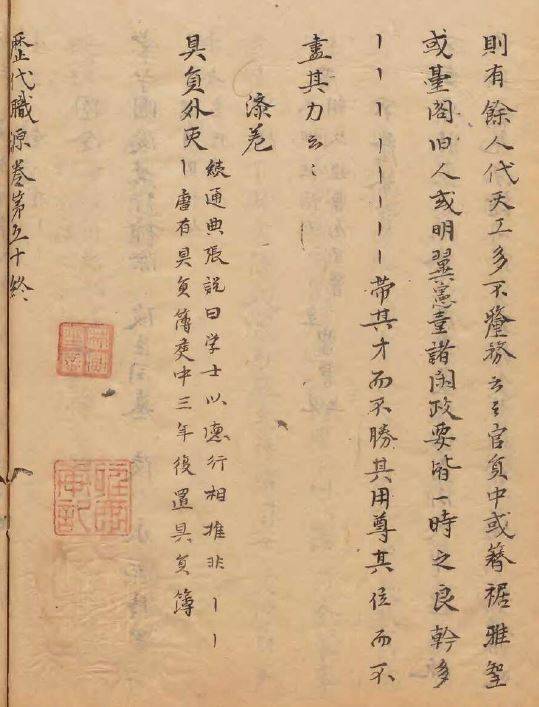 則有餘人代天工多不釐務云々官負中或簪裾雅望
或臺閣旧人或明翼憲臺諸閑政要皆一時之良幹多
丨丨丨丨丨丨丨丨帶其才而不勝其用尊其位而不
盡其力云々
漆卷
具負外更 続通典張説曰学士以德行相推非丨丨
丨唐有具負簿 中三年後置具負簿
歷代職源卷第五十終